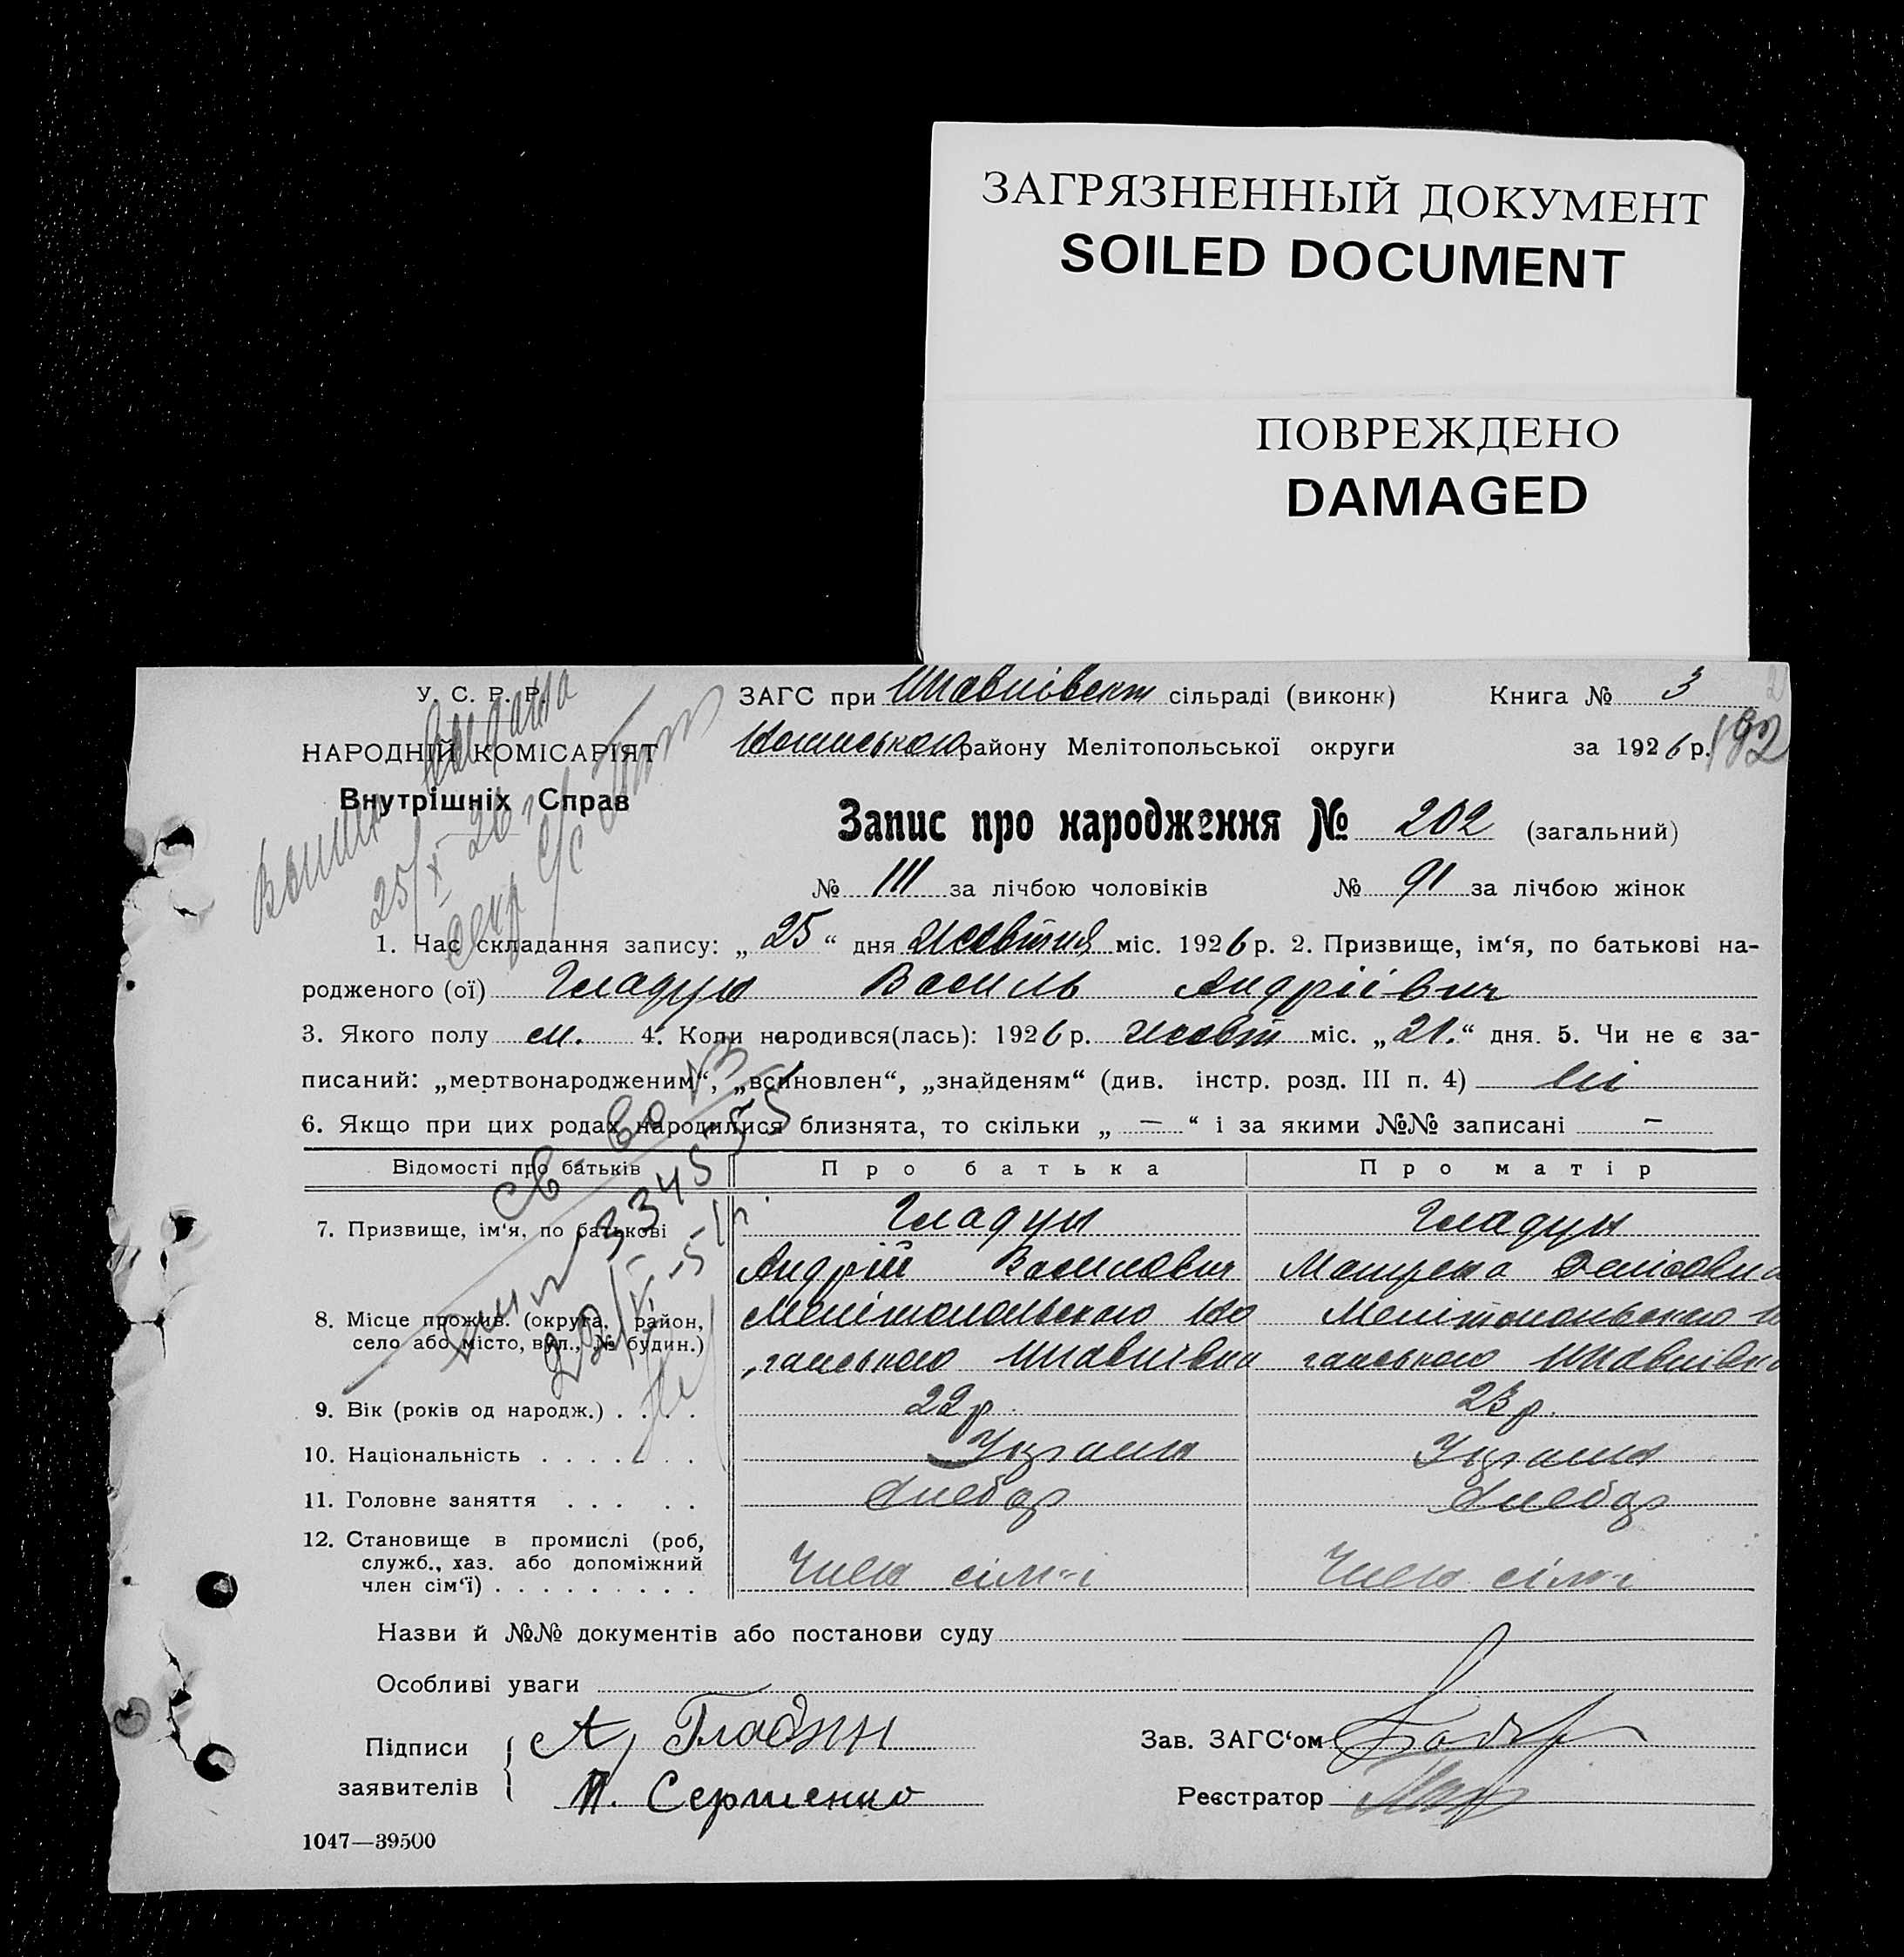 ЗАГРЯЗНЕННЫЙ ДОКУМЕНТ
SOILED DOCUMENT
ПОВРЕЖДЕНО
DAMAGED
У. С. Р. Р.
НАРОДНІЙ КОМІСАРІЯТ
Внутрішніх Справ
ЗАГС при сільраді (виконк) Книга № 3
району Мелітопольської округи за 1926 р. 192
Запис про народження № 202 (загальний)
№ 111 за лічбою чоловіків № 91 за лічбою жінок
25/X 26
1. Час складання запису: „25“ дня Жовтня міс. 1926 р. 2. Призвище, ім‘я, по батькові на-
родженого (ої) Гладун Василь Андрієвич
3. Якого полу м. 4. Коли народився(лась): 1926 р. жовт міс. „21.“ дня. 5. Чи не є за-
писаний: „мертвонародженим“, „всиновлен“, „знайденям“ (див. інстр. розд. III п. 4) ні
6. Якщо при цих родах народилися близнята, то скільки „ — “ і за якими №№ записані —
Відомості про батьків Про батька Про матір
7. Призвище, ім‘я, по батькові Гладун Гладун
Андрій Василович
8. Місце прожив. (округа, район,
село або місто, вул., № будин.)
9. Вік (років од народж.) . . . . 22 р. 23 р.
10. Національність . . . . . . . Україн Україн
11. Головне заняття . . . . . Хлебор Хлебор
12. Становище в промислі (роб,
служб., хаз. або допоміжний
член сім‘ї) . . . . . . . . . Член сім'ї Член сім'ї
Назви й №№ документів або постанови суду
Особливі уваги
Підписи
заявителів
А. Гладун
П. Сергиенко
Зав. ЗАГС‘ом
Реєстратор
1047—39500